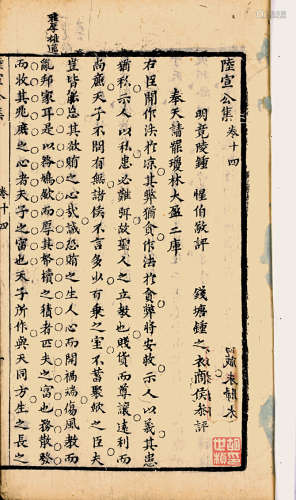 陸宣公集 卷十四
明 竟陵鍾 惺伯敬評
錢塘鍾之
奉天請罷瓊林大盈二庫
右臣聞作法於凉其弊猶貪作法於貪弊將安救示人以義其患
猶私示人以私患必難弭故聖人之立教也賤貨而尊讓遠利而
尚廉天子不問有無諸侯不言多少百乘之室不蓄聚歛之臣夫
豈皆能忘其欲賄之心哉誠恐賄之生人心而開禍端傷風教而
亂邦家耳是以務鳩歛而厚其帑櫝之積者匹夫之富也務散發
而收其兆庶之心者天子之富也天子所作與天同方生之長之
卷十四